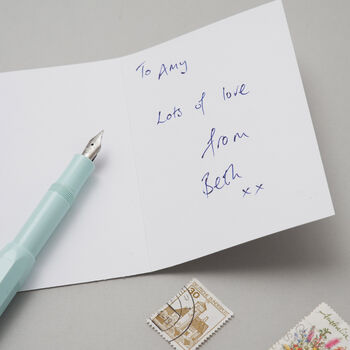 To Amy
Lots of love
from
Beth
xx
30
Australia